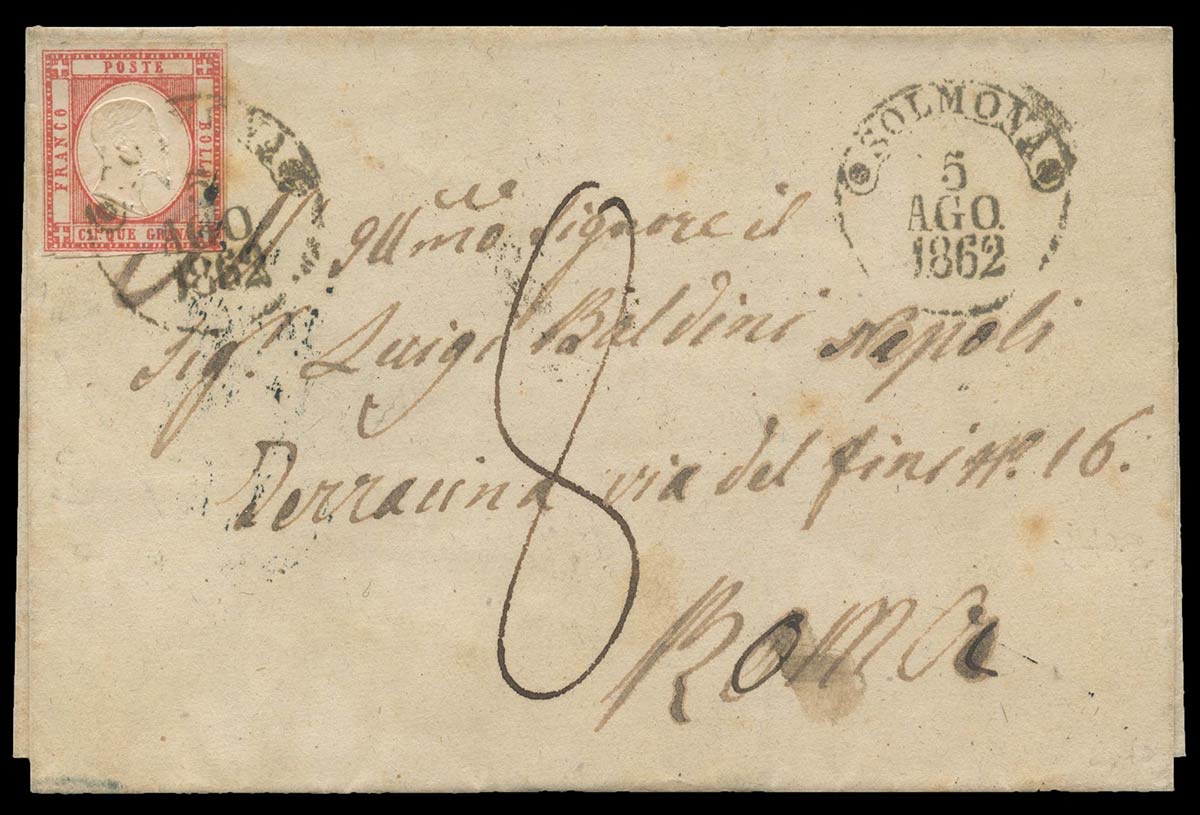 POSTE
FRANCO
BOLLO
CINQUE GRANA
AGO.
1862
SOLMONA
5
AGO.
1862
All' Ill.mo Signore il
Sig.r Luigi Baldini Napoli
Terracina via del fini n.o 16.
Roma
8